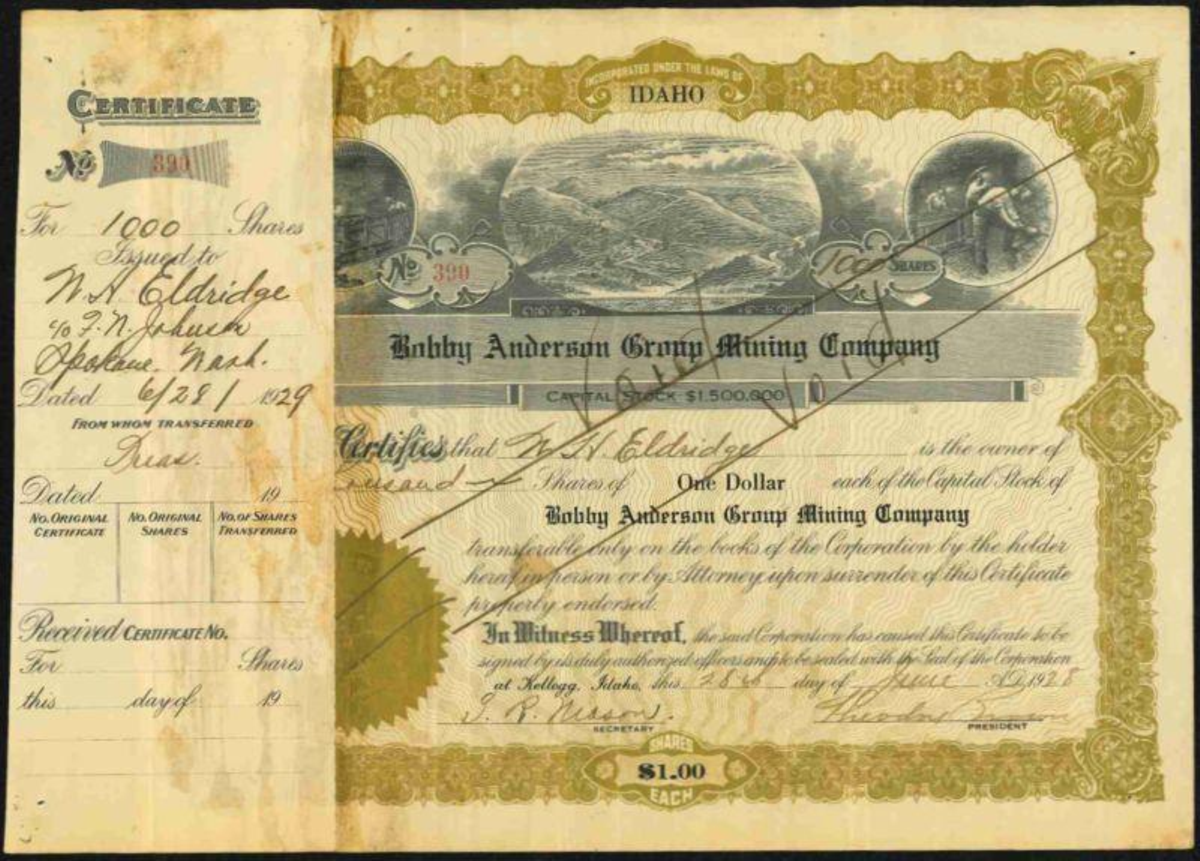 CERTIFICATE
No 390
For 1000 Shares
Issued to
W. H. Eldridge
c/o F. N. Johnson
Spokane, Wash.
Dated 6/28/ 1929
FROM WHOM TRANSFERRED
Treas.
Dated 19
NO. ORIGINAL CERTIFICATE NO. ORIGINAL SHARES NO. OF SHARES TRANSFERRED
Received CERTIFICATE NO.
For Shares
this day of 19
INCORPORATED UNDER THE LAWS OF
IDAHO
No 390
1000 SHARES
Bobby Anderson Group Mining Company
CAPITAL STOCK $1,500,000
Void Void
Certifies that W. H. Eldridge is the owner of
ousand Shares of One Dollar each of the Capital Stock of
Bobby Anderson Group Mining Company
transferable only on the books of the Corporation by the holder
hereof in person or by Attorney upon surrender of this Certificate
properly endorsed.
In Witness Whereof, the said Corporation has caused this Certificate to be
signed by its duly authorized officers and to be sealed with the Seal of the Corporation
at Kellogg, Idaho, this 28th day of June A.D. 1928
S. R. Mason. Theodore
SECRETARY PRESIDENT
SHARES
$1.00
EACH